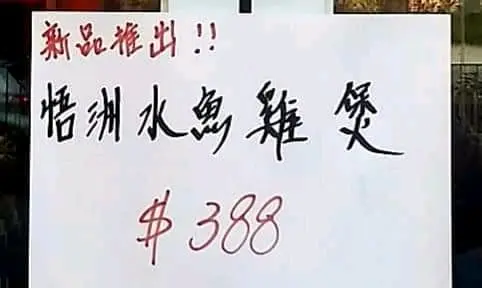 新品推出!!
悟洲水魚雞煲
$388